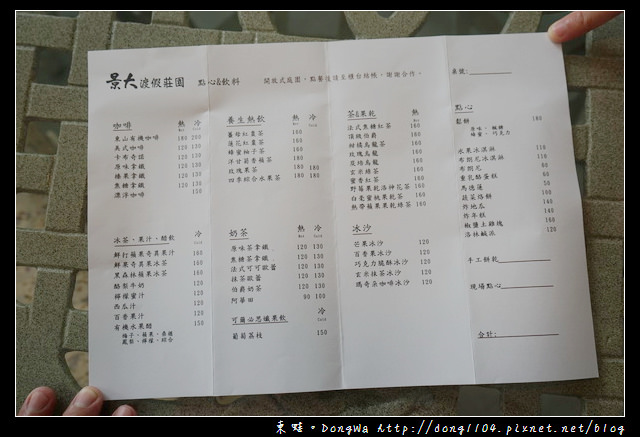 景大渡假莊園 點心&飲料 開放式庭園,點餐後請至櫃台結帳,謝謝合作。
桌號:
咖啡 熱 冷
Hot Cold
東山有機咖啡 180 200
美式咖啡 120 130
卡布奇諾 120 130
原味拿鐵 120 130
榛果拿鐵 120 130
焦糖拿鐵 120 130
漂浮咖啡 150
養生熱飲 熱 冷
Hot Cold
薑母紅棗茶 160
蓮花紅棗茶 160
蜂蜜柚子茶 160
洋甘菊香蘋茶 160
玫瑰果茶 180 180
四季綜合水果茶 180 180
茶&果乾 熱
Hot
法式焦糖紅茶 160
頂級伯爵 160
柑橘烏龍茶 160
玫瑰烏龍 160
炭焙烏龍 160
玄米綠茶 160
蜜香紅茶 160
野莓果乾洛神花茶 160
白毫蜜桃果乾茶 160
熱帶蘋果果乾綠茶 160
點心
鬆餅 180
原味、楓糖
蜂蜜、巧克力
水果冰淇淋 110
布朗尼冰淇淋 110
布朗尼 60
重乳酪蛋糕 60
馬德蓮 50
蔬菜烙餅 100
炸地瓜 100
炸年糕 100
椒鹽土雞塊 160
洛林鹹派 120
手工餅乾
現場點心
合計:
冰茶、果汁、醋飲 冷
Cold
鮮打蘋果奇異果汁 160
鮮果奇異果冰茶 160
黑森林蘋果冰茶 160
酪梨牛奶 120
檸檬蜜汁 120
西瓜汁 120
百香果汁 120
有機水果醋 150
梅子、蘋果、桑椹
鳳梨、檸檬、綜合
奶茶 熱 冷
Hot Cold
原味茶拿鐵 120 130
焦糖茶拿鐵 120 130
法式可可歐蕾 120 130
抹茶歐蕾 120 130
伯爵奶茶 120 130
阿華田 90 100
可爾必思纖果飲 冷
Cold
葡萄荔枝 150
冰沙
芒果冰沙 120
百香果冰沙 120
巧克力脆酥冰沙 120
玄米抹茶冰沙 120
瑪奇朵咖啡冰沙 120
東哇。DongWa http://dong1104.pixnet.net/blog